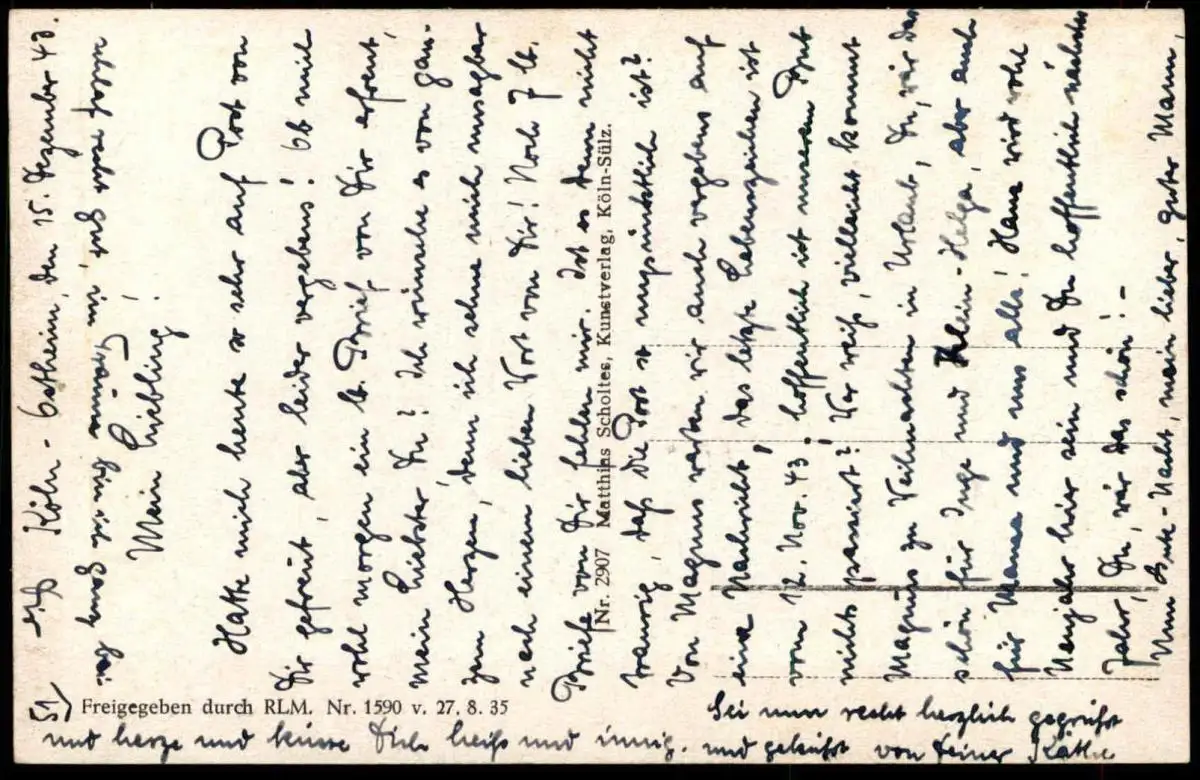 51) Köln-Ostheim, den 15. Dezember 43.
Mein Liebling!
Hatte mich heute so sehr auf Post von
Dir gefreut, aber leider vergebens! Ob mir
wohl morgen ein lb. Brief von Dir erfreut,
mein Liebster Du? Ich wünsche es von gan-
zem Herzen, denn ich sehne mich unsagbar
nach einem lieben Wort von Dir! Noch 7 lb.
Briefe von Dir fehlen mir. Ist es denn nicht
traurig, daß die Post so unpünktlich ist?
Von Magnus warten wir auch vergebens auf
eine Nachricht, das letzte Lebenszeichen ist
vom 12. Nov. 43, hoffentlich ist unserem
nichts passiert? Wer weiß, vielleicht kommt
Magnus zu Weihnachten in Urlaub, Du, wär das
schön für Inge und Klein-Helga, aber auch
für Mama und uns alle! Hans wird wohl
Neujahr hier sein und Du hoffentlich nächstes
Jahr, Du, wär das schön! –
Nun Gute-Nacht, mein lieber, guter Mann,
Sei nun recht herzlich gegrüßt
und geküßt von Deiner Käthe
und herze und küsse Dich heiß und innig.
Nr. 2907 Matthias Scholtes, Kunstverlag, Köln-Sülz.
Freigegeben durch RLM. Nr. 1590 v. 27. 8. 35